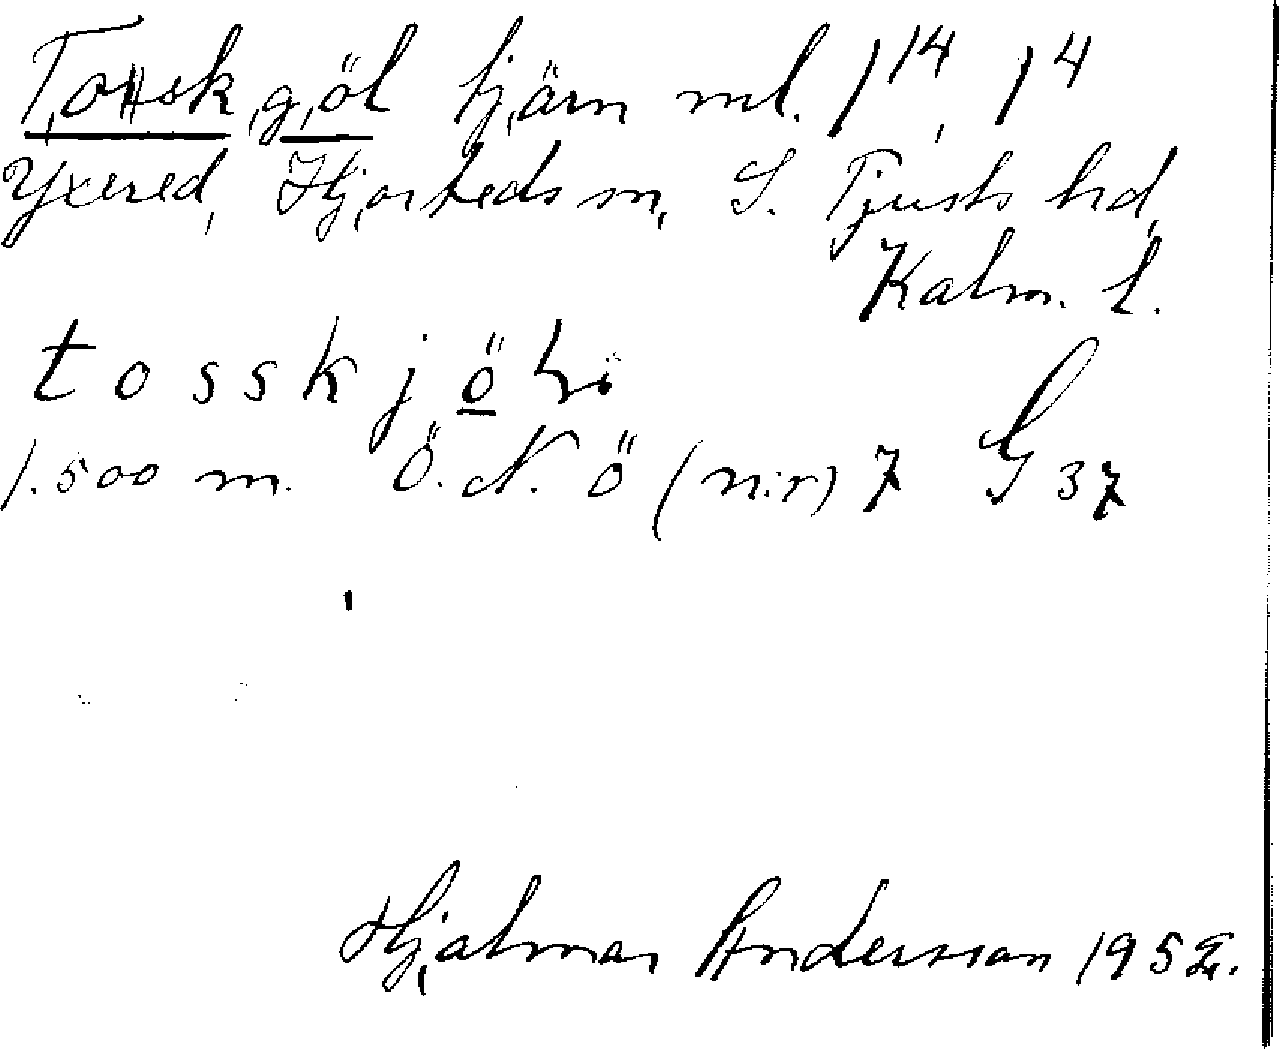 Tossk göl tjärn ml. 1 14, 1 4
Yxered, Hjorteds sn, S. Tjusts hd,
Kalm. l.
tosskjöl
1.500 m. Ö. N. Ö (n:r) 7 G 37
Hjalmar Andersson 1952.